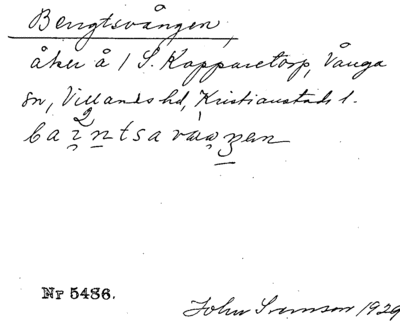 Bengtsvången,
åker å 1 S. Kopparetorp, Vånga
sn, Villands hd, Kristianstads l.
Nr 5486.
John Svenson 1929